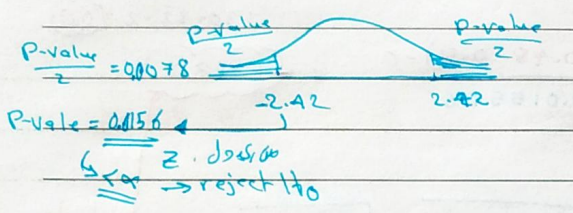 P-value/2        P-value/2
P-value/2 = 0.0078
-2.42        2.42
P-vale = 0.0156
Z. جدول
< α → reject H0